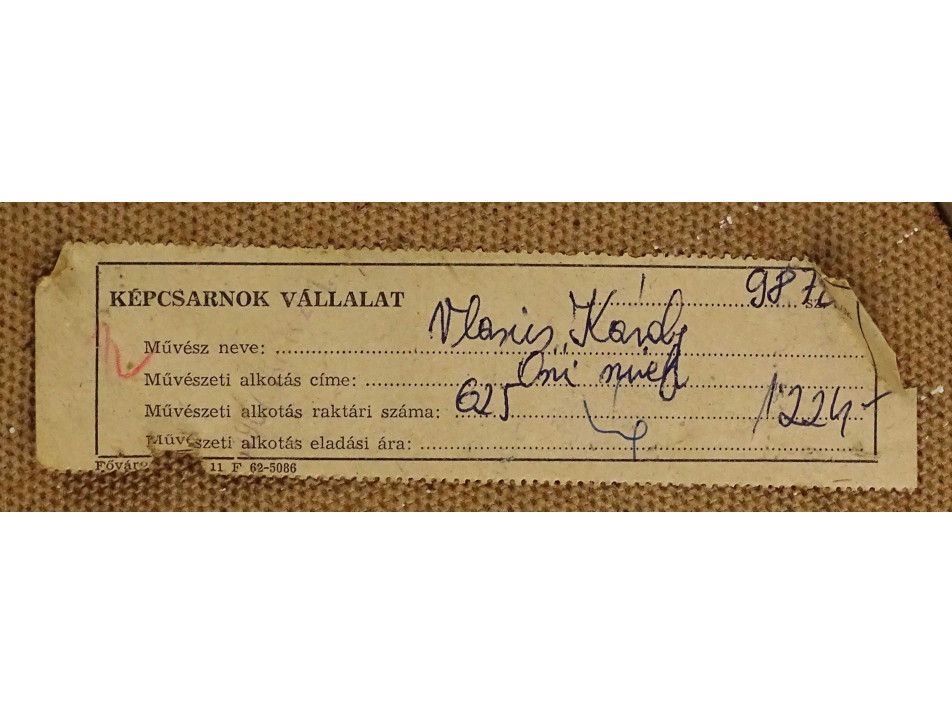 KÉPCSARNOK VÁLLALAT 987
Művész neve: Vlasics Károly
Művészeti alkotás címe: Őszi
Művészeti alkotás raktári száma: 625 1224-
Művészeti alkotás eladási ára:
11 F 62-5086